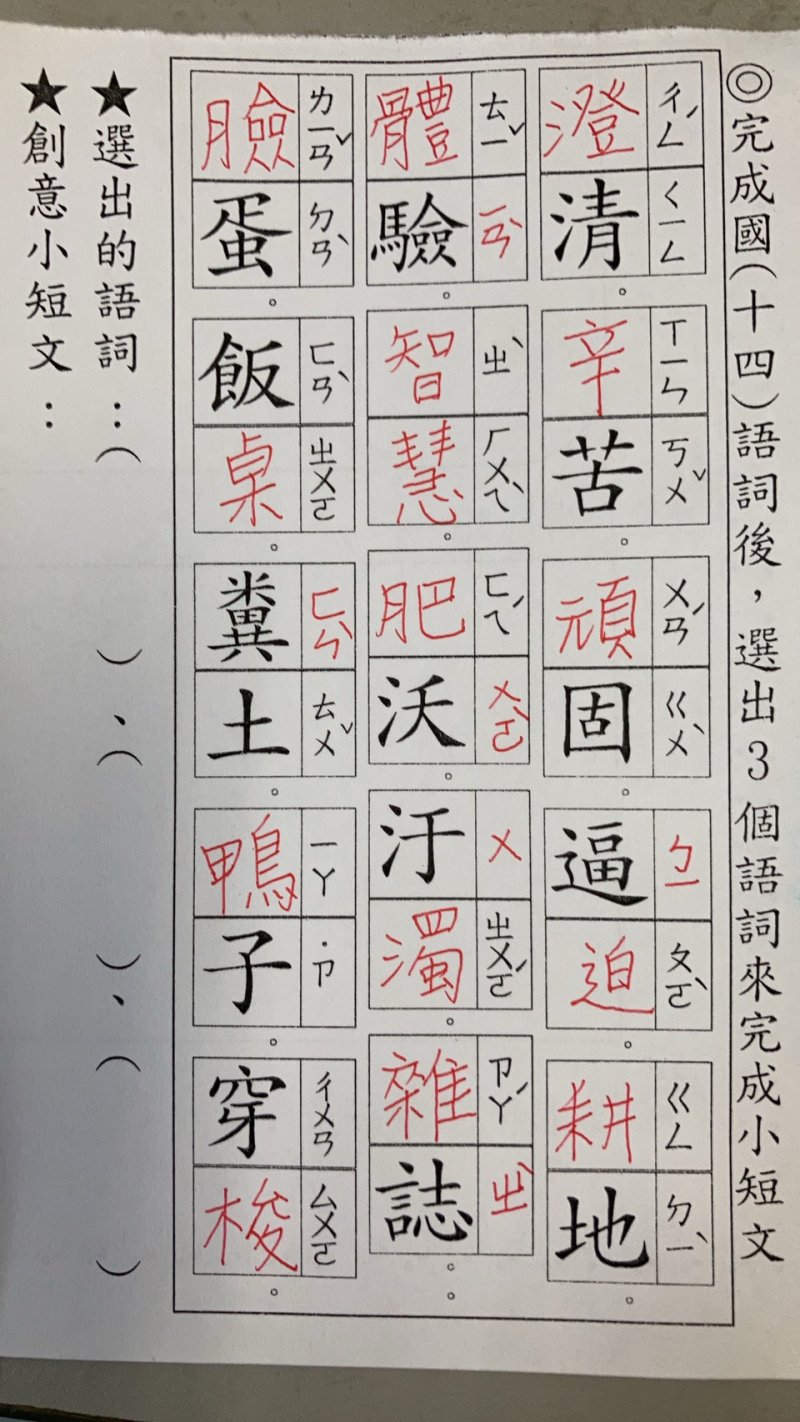 ◎完成國(十四)語詞後，選出3個語詞來完成小短文
澄ㄔㄥˊ清ㄑㄧㄥ。辛ㄒㄧㄣ苦ㄎㄨˇ。頑ㄨㄢˊ固ㄍㄨˋ。逼ㄅㄧ迫ㄆㄛˋ。耕ㄍㄥ地ㄉㄧˋ。
體ㄊㄧˇ驗ㄧㄢˋ。智ㄓˋ慧ㄏㄨㄟˋ。肥ㄈㄟˊ沃ㄨㄛˋ。汙ㄨ濁ㄓㄨㄛˊ。雜ㄗㄚˊ誌ㄓˋ。。
臉ㄌㄧㄢˇ蛋ㄉㄢˋ。飯ㄈㄢˋ桌ㄓㄨㄛ。糞ㄈㄣˋ土ㄊㄨˇ。鴨ㄧㄚ子˙ㄗ。穿ㄔㄨㄢ梭ㄙㄨㄛ。
★選出的語詞：( )、( )、( )
★創意小短文：